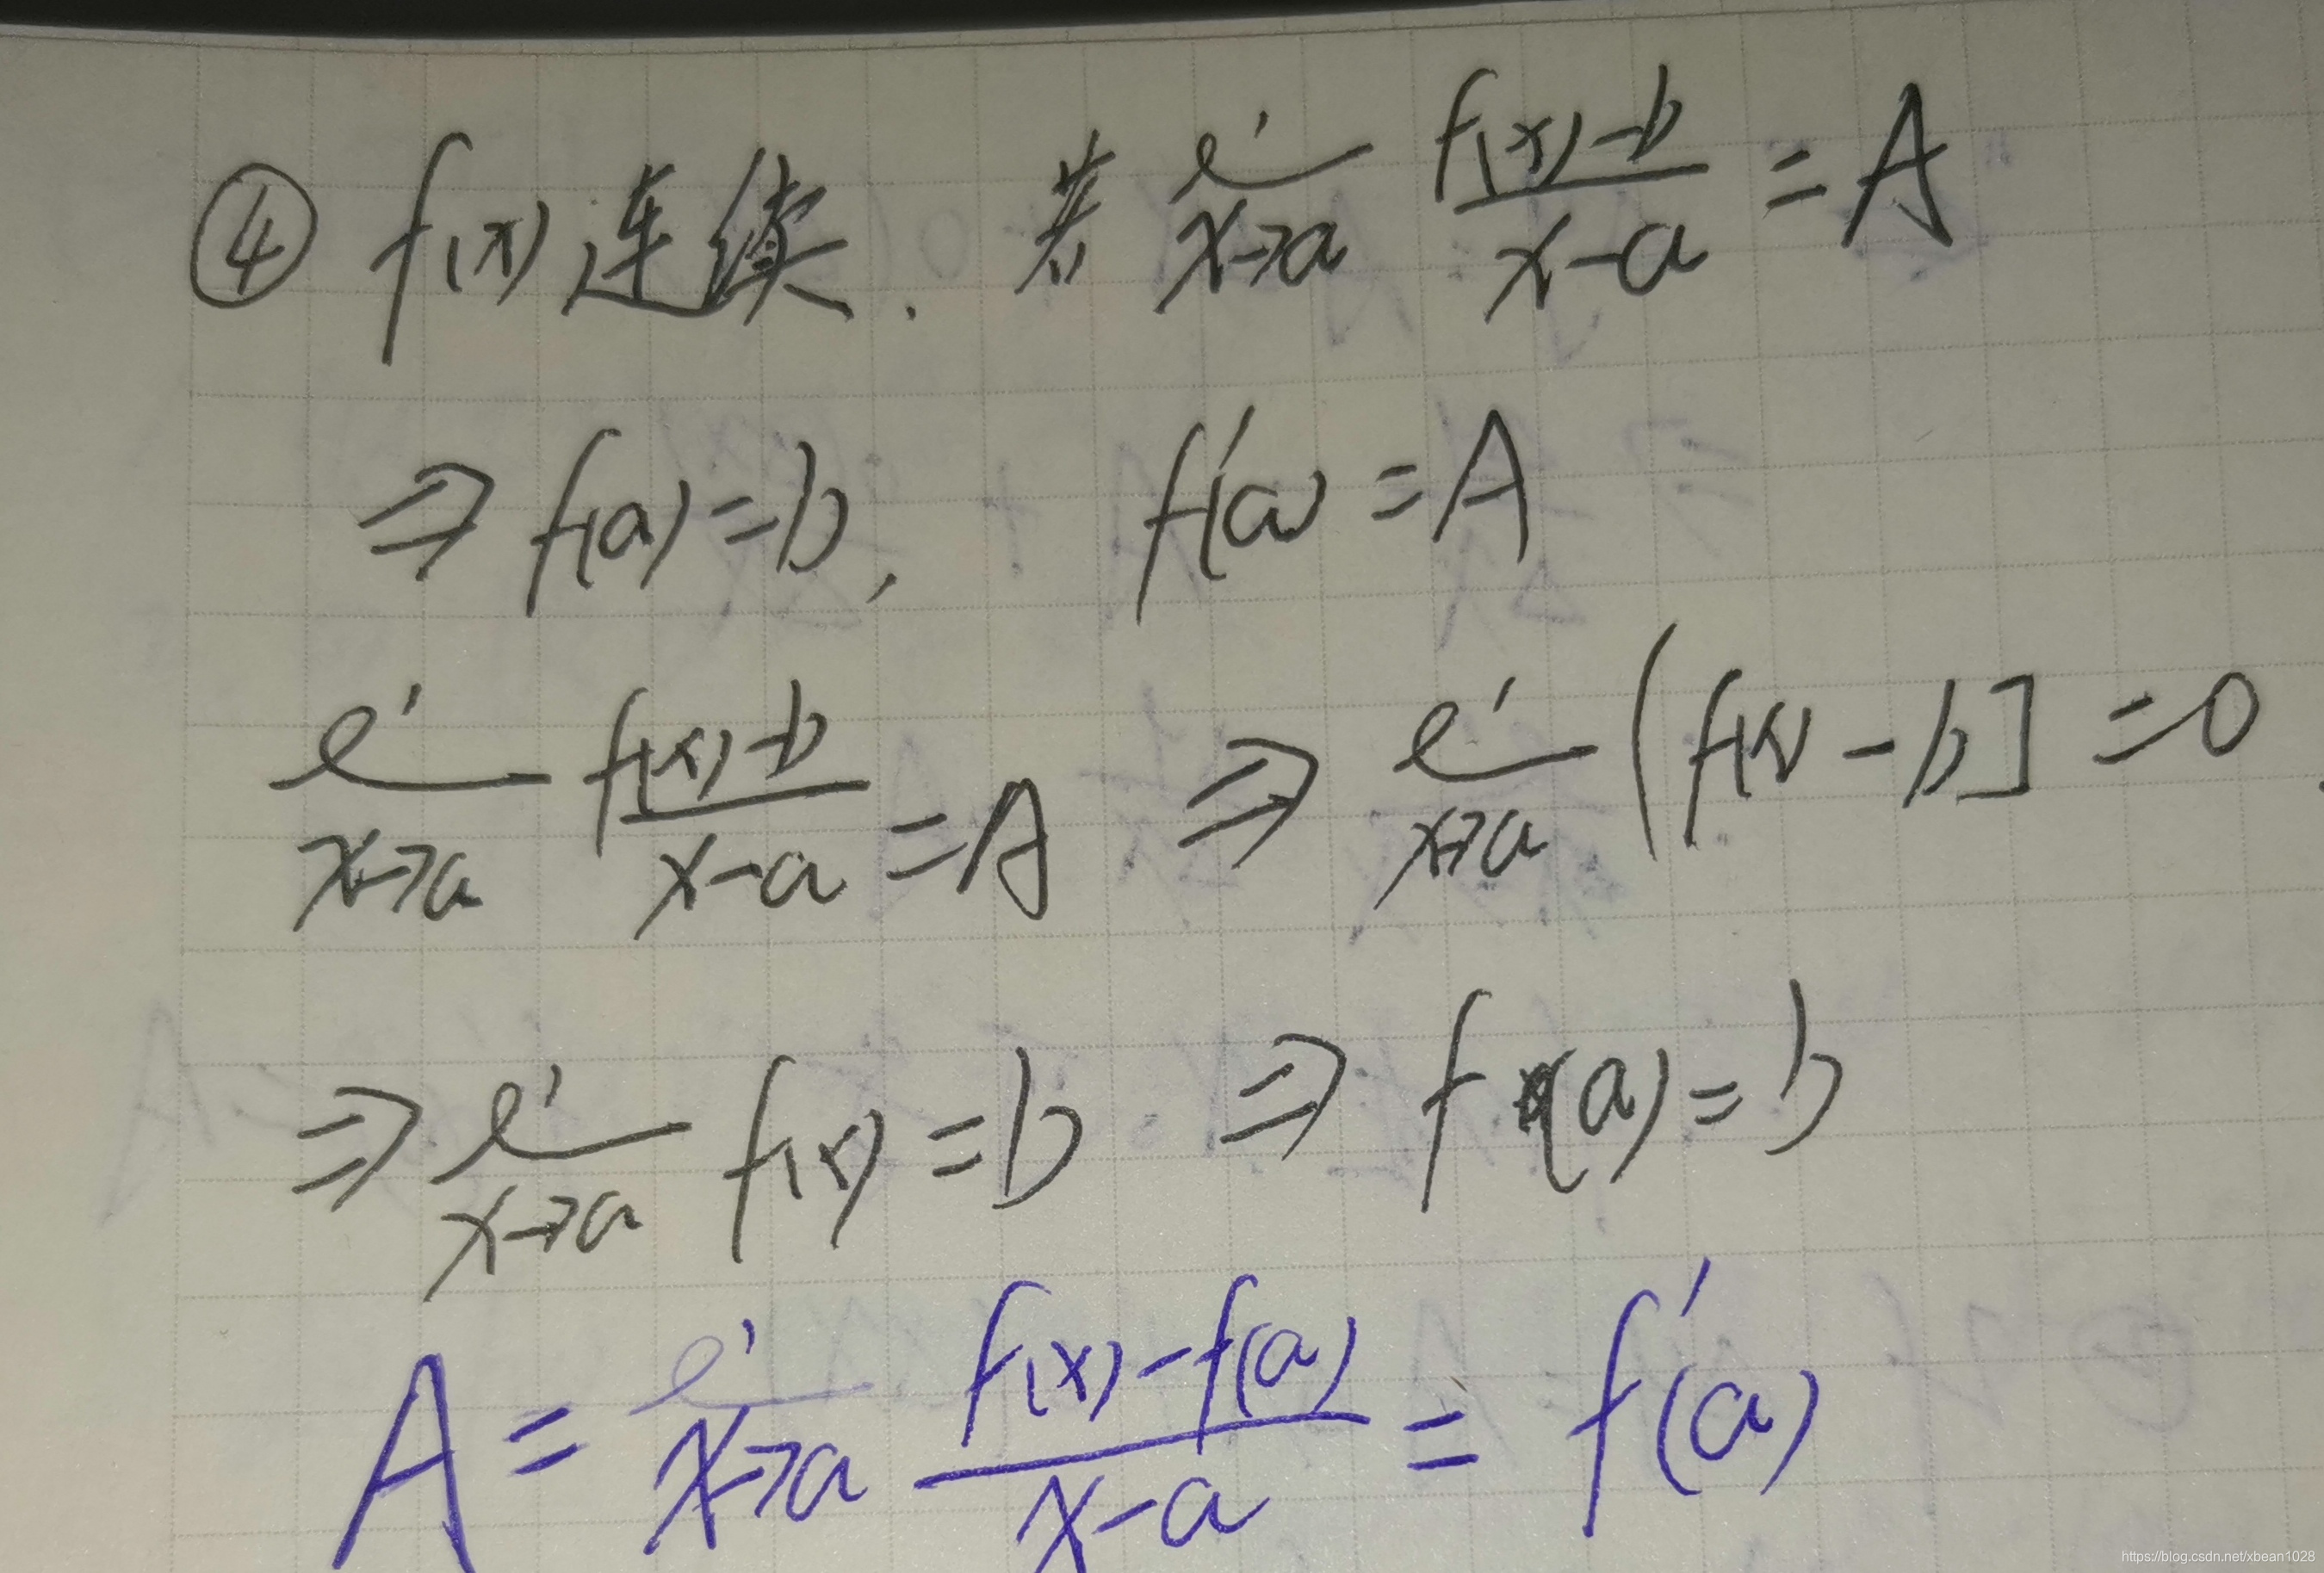 ④ f(x)连续. 若 lim x→a (f(x)-b)/(x-a) = A
⇒ f(a)=b, f'(a)=A
lim x→a (f(x)-b)/(x-a) = A ⇒ lim x→a [f(x)-b]=0.
⇒ lim x→a f(x)=b ⇒ f(a)=b
A = lim x→a (f(x)-f(a))/(x-a) = f'(a)
https://blog.csdn.net/xbean1028